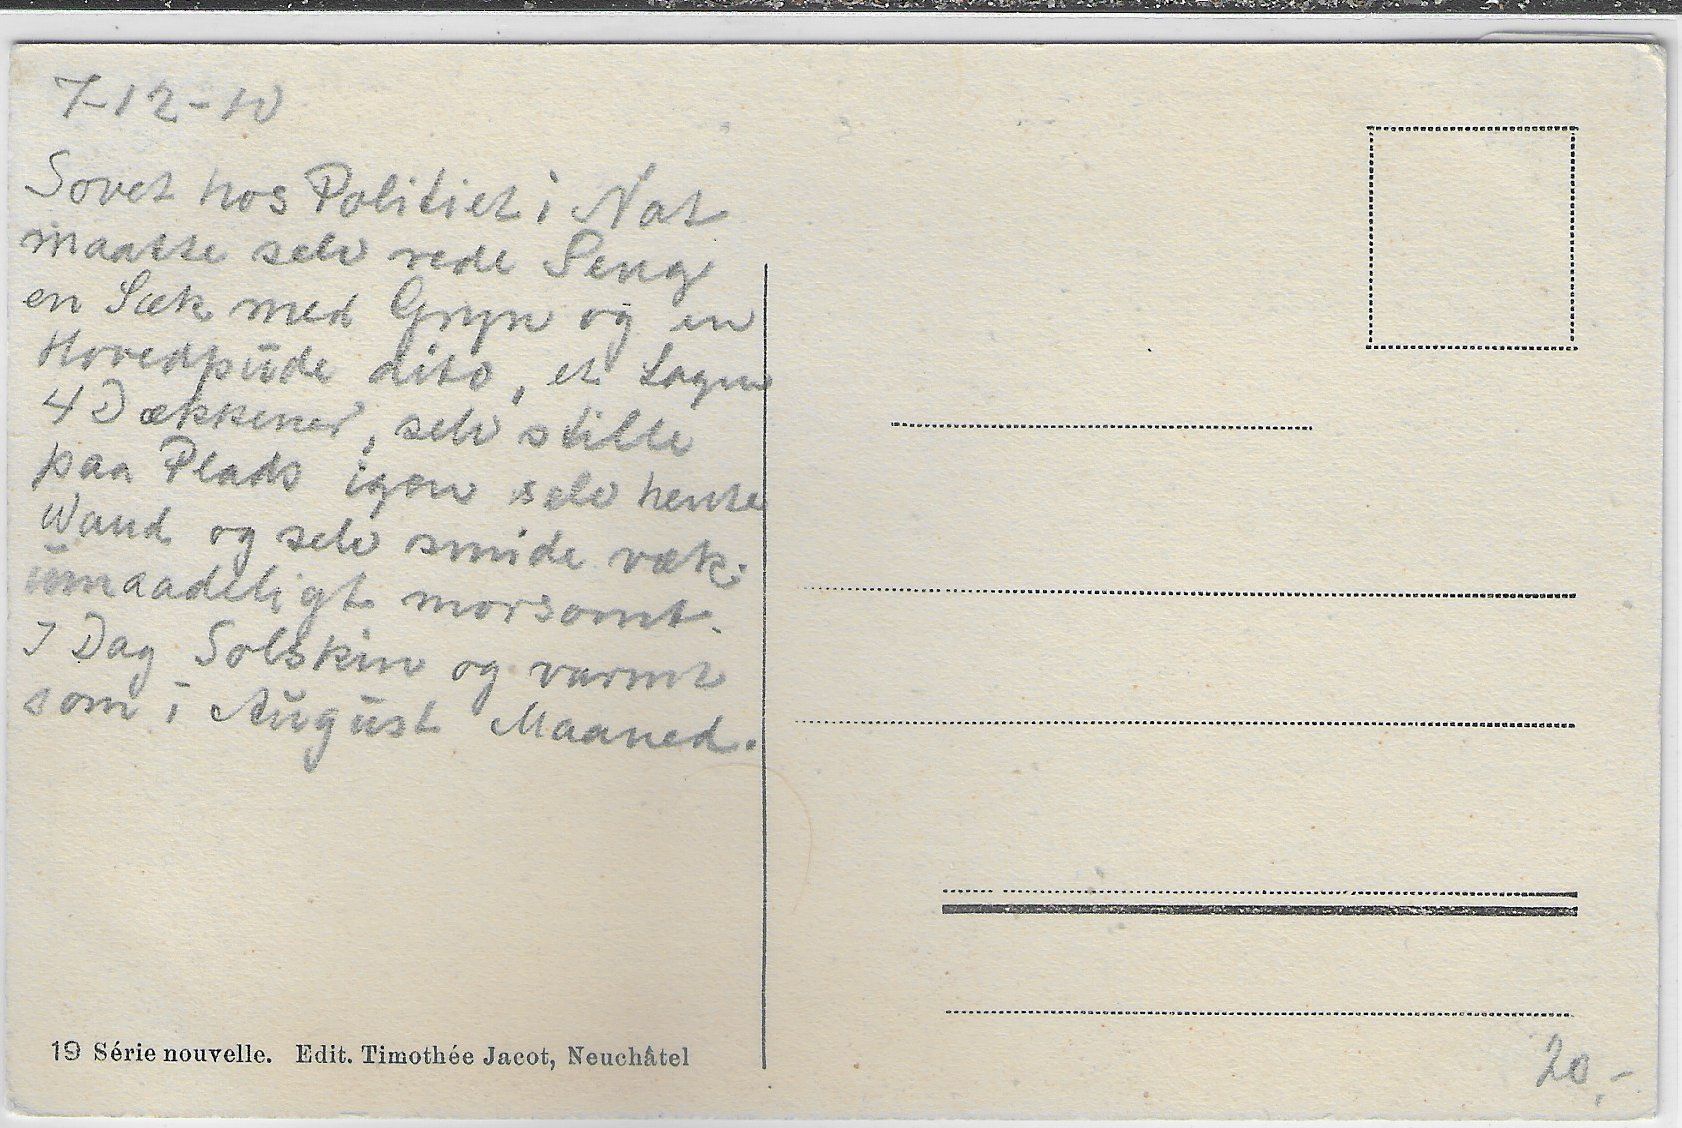 7-12-10
Sovet hos Politiet i Nat
maatte selv rede Seng
en Sæk med Gryn og en
Hovedpude dito, et Lagen
4 Dækkener, selv stille
paa Plads igen selv hente
Wand og selv smide væk;
umaadeligt morsomt.
I Dag Solskin og varmt
som i August Maaned.
19 Série nouvelle. Edit. Timothée Jacot, Neuchâtel
20,-